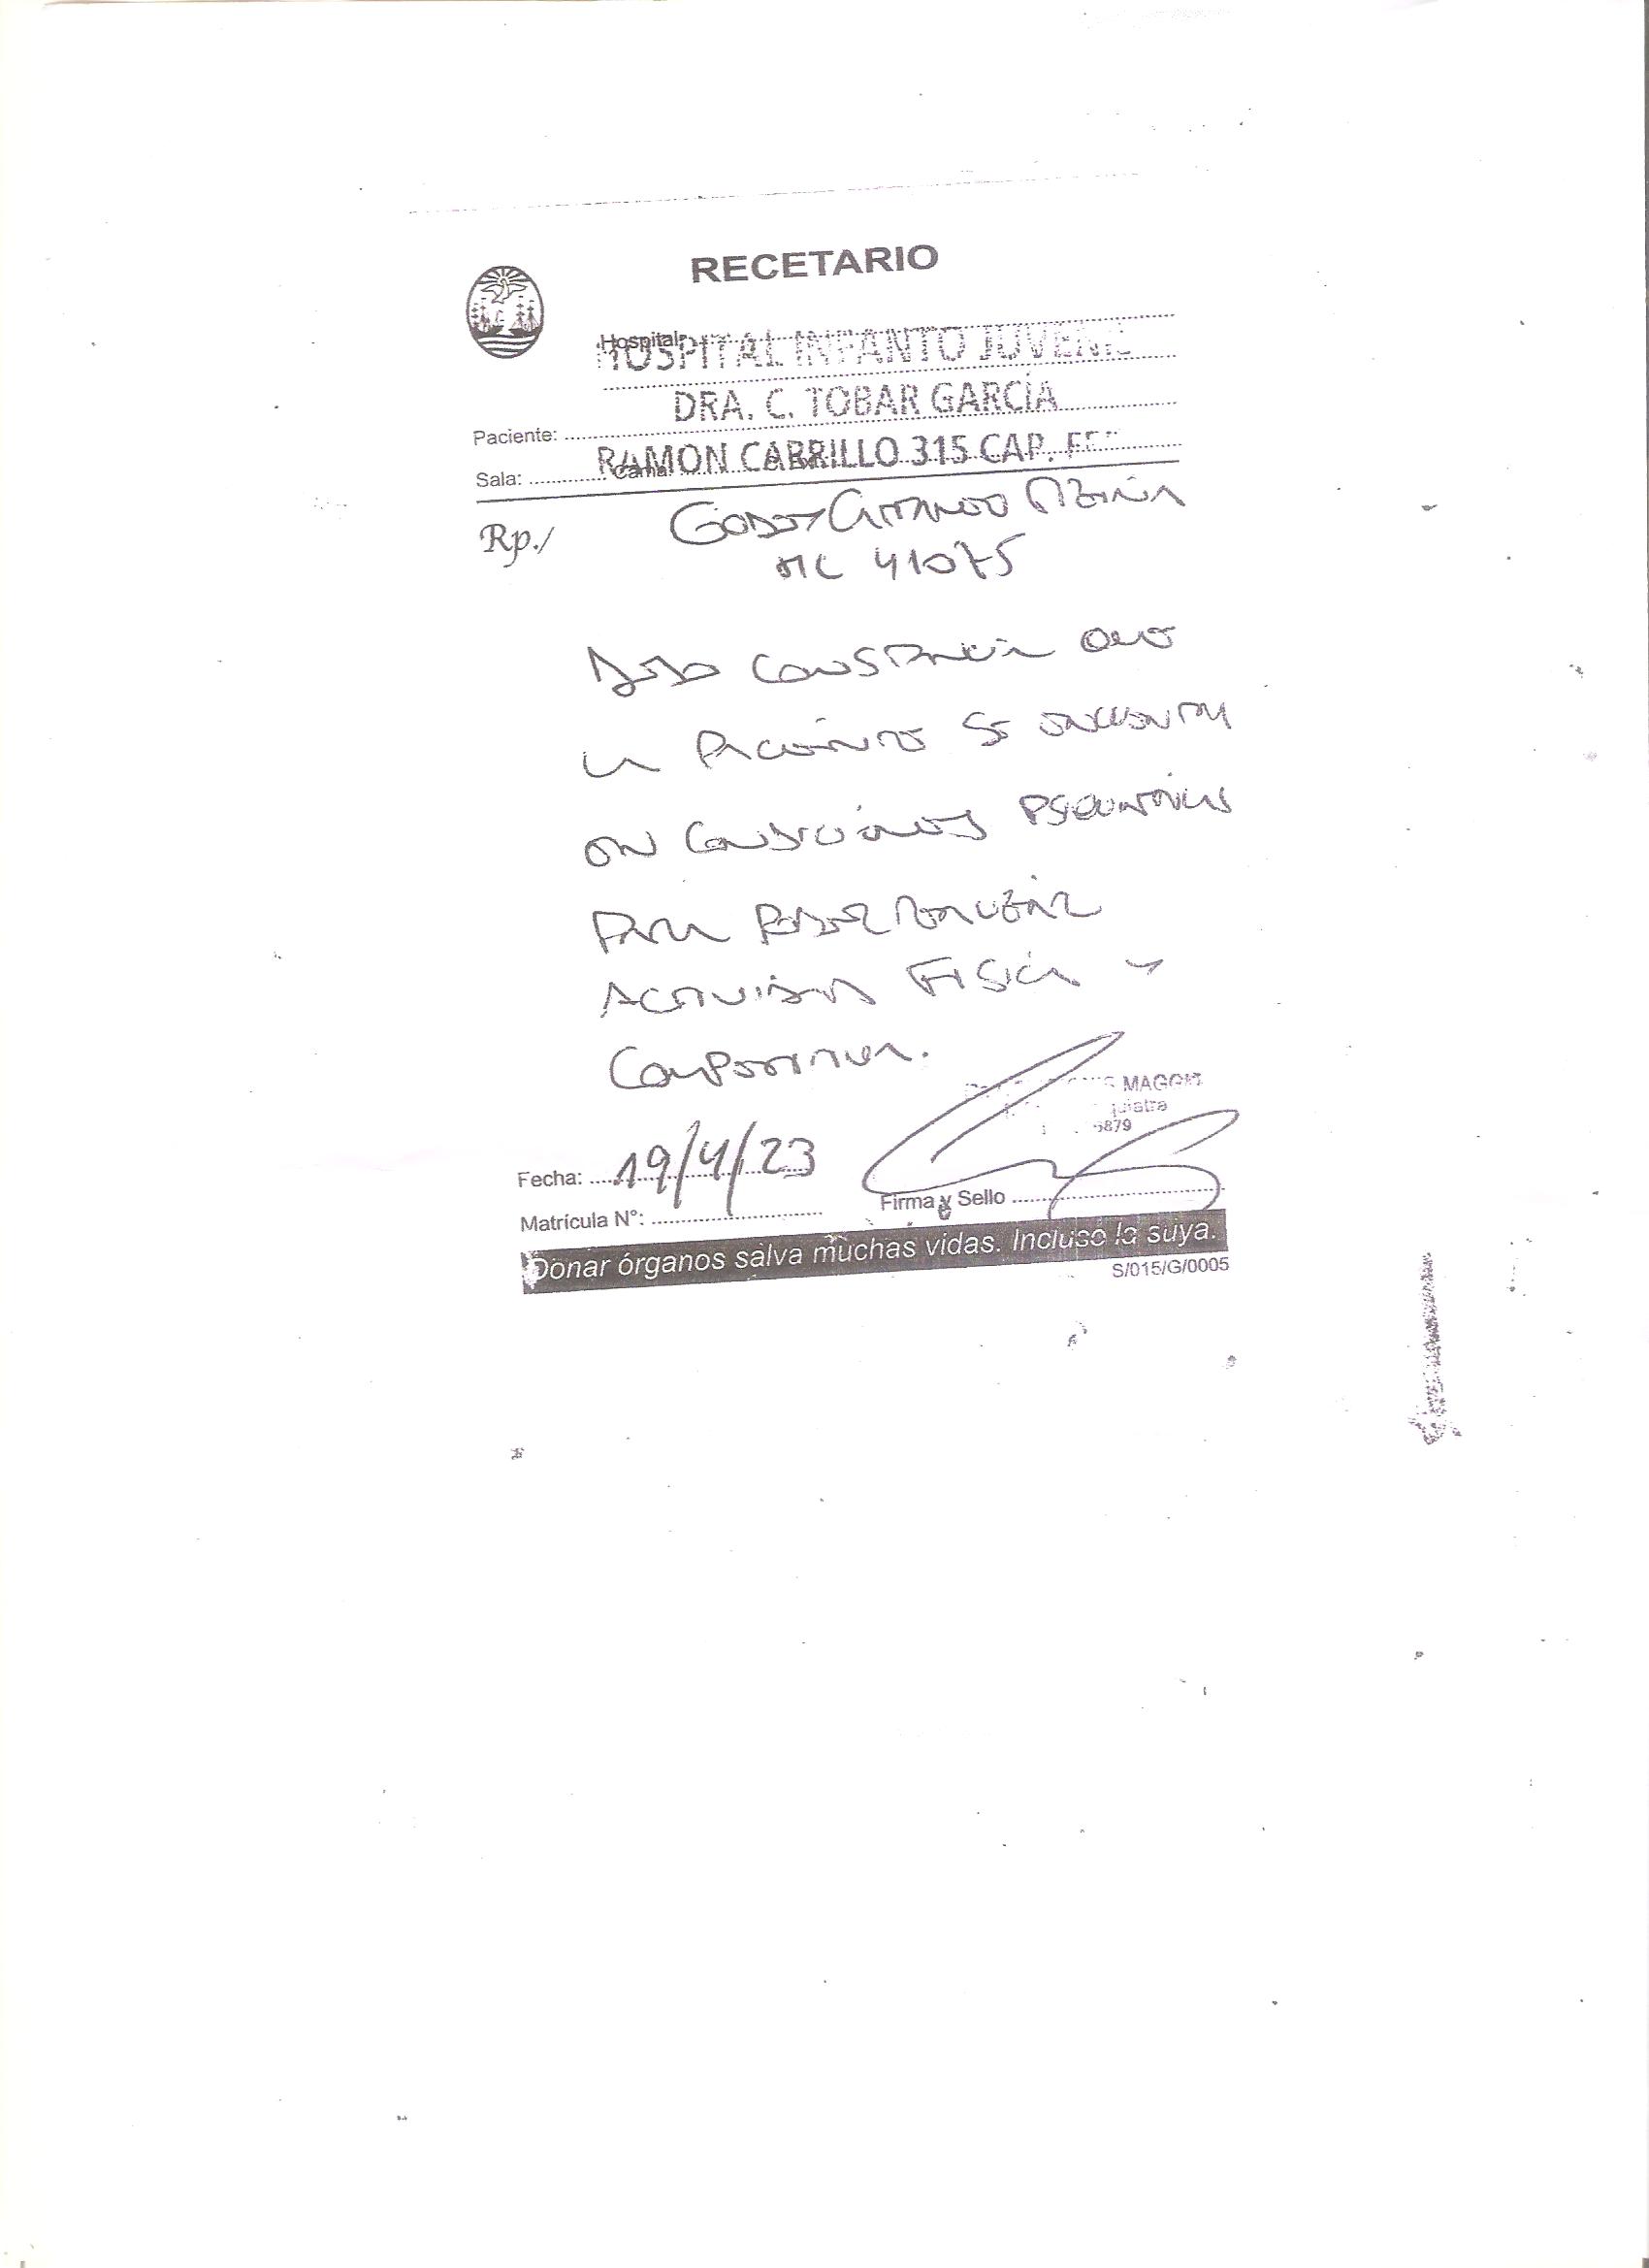 RECETARIO
Hospital:
HOSPITAL INFANTO JUVENIL
DRA. C. TOBAR GARCÍA
Paciente:
RAMON CARRILLO 315 CAP. FE
Sala: Cama:
Rp./
HC 41075
Dejo constancia que
la paciente se encuentra
en condiciones psiquiátricas
para poder realizar
actividad física y
competitiva.
MAGGI
quiatra
5879
Fecha: 19/4/23
Firma y Sello
Matrícula N°:
Donar órganos salva muchas vidas. Incluso la suya.
S/015/G/0005